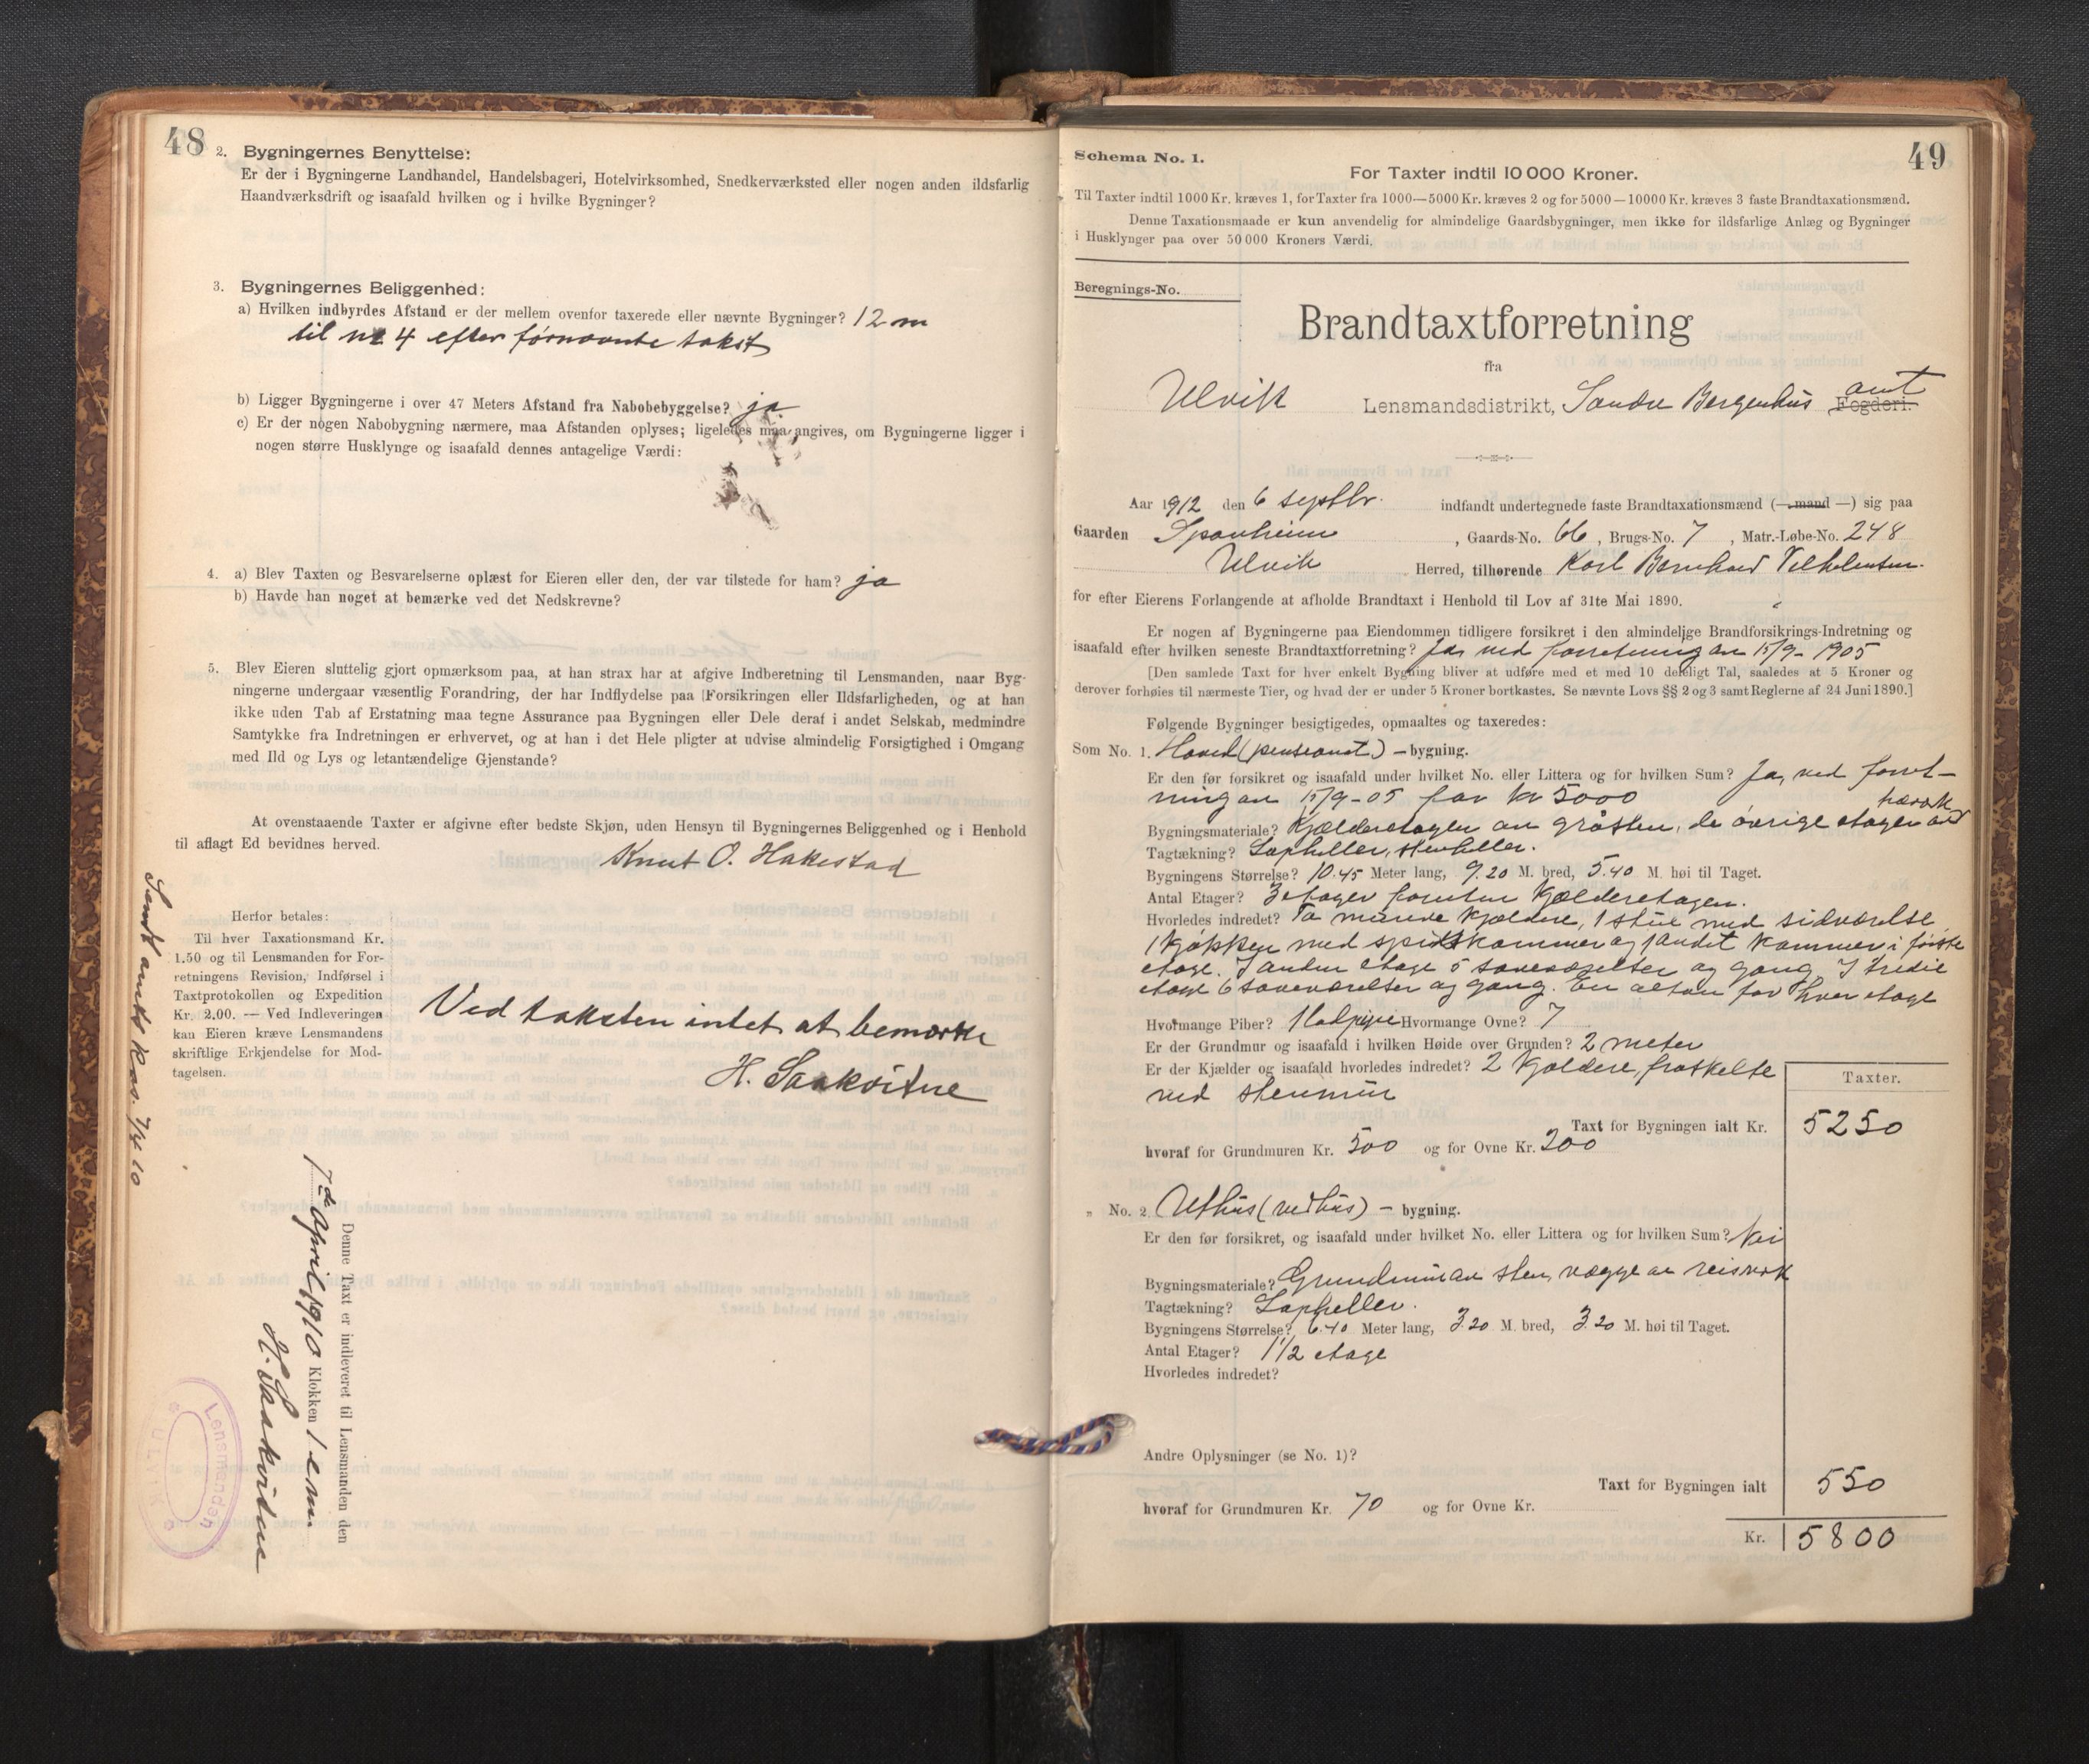 48
2. Bygningernes Benyttelse:
Er der i Bygningerne Landhandel, Handelsbageri, Hotelvirksomhed, Snedkerværksted eller nogen anden ildsfarlig
Haandværksdrift og isaafald hvilken og i hvilke Bygninger?
3. Bygningernes Beliggenhed:
a) Hvilken indbyrdes Afstand er der mellem ovenfor taxerede eller nævnte Bygninger? 12 m
til no 4 efter førnævnte takst
b) Ligger Bygningerne i over 47 Meters Afstand fra Nabobebyggelse? ja
c) Er der nogen Nabobygning nærmere, maa Afstanden oplyses; ligeledes maa angives, om Bygningerne ligger i
nogen større Husklynge og isaafald dennes antagelige Værdi:
4. a) Blev Taxten og Besvarelserne oplæst for Eieren eller den, der var tilstede for ham? ja
b) Havde han noget at bemærke ved det Nedskrevne?
5. Blev Eieren sluttelig gjort opmærksom paa, at han strax har at afgive Indberetning til Lensmanden, naar Byg-
ningerne undergaar væsentlig Forandring, der har Indflydelse paa Forsikringen eller Ildsfarligheden, og at han
ikke uden Tab af Erstatning maa tegne Assurance paa Bygningen eller Dele deraf i andet Selskab, medmindre
Samtykke fra Indretningen er erhvervet, og at han i det Hele pligter at udvise almindelig Forsigtighed i Omgang
med Ild og Lys og letantændelige Gjenstande?
At ovenstaaende Taxter er afgivne efter bedste Skjøn, uden Hensyn til Bygningernes Beliggenhed og i Henhold
til aflagt Ed bevidnes herved.
Knut O. Hakestad
Herfor betales:
Til hver Taxationsmand Kr.
1.50 og til Lensmanden for For-
retningens Revision, Indførsel i
Taxtprotokollen og Expedition
Kr. 2.00. — Ved Indleveringen
kan Eieren kræve Lensmandens
skriftlige Erkjendelse for Mod-
tagelsen.
Ved taksten intet at bemærke
H. Saakvitne
Sendt amts kas. 7/4 10
Denne Taxt er indleveret til Lensmanden den
7de April 1910 Klokken 1 em.
H. Saakvitne
Lensmanden
ULVIK
49
Schema No. 1.
For Taxter indtil 10 000 Kroner.
Til Taxter indtil 1000 Kr. kræves 1, for Taxter fra 1000—5000 Kr. kræves 2 og for 5000—10000 Kr. kræves 3 faste Brandtaxationsmænd.
Denne Taxationsmaade er kun anvendelig for almindelige Gaardsbygninger, men ikke for ildsfarlige Anlæg og Bygninger
i Husklynger paa over 50 000 Kroners Værdi.
Beregnings-No.
Brandtaxtforretning
fra
Ulvik Lensmandsdistrikt, Søndre Bergenhus amt Fogderi.
Aar 1912 den 6 septbr. indfandt undertegnede faste Brandtaxationsmænd (—mand —) sig paa
Gaarden Sponheim, Gaards-No. 66, Brugs-No. 7, Matr.-Løbe-No. 248
Ulvik Herred, tilhørende Karl Bernhard
for efter Eierens Forlangende at afholde Brandtaxt i Henhold til Lov af 31te Mai 1890.
Er nogen af Bygningerne paa Eiendommen tidligere forsikret i den almindelige Brandforsikrings-Indretning og
isaafald efter hvilken seneste Brandtaxtforretning? Ja, ved forretning av 15/9-1905
[Den samlede Taxt for hver enkelt Bygning bliver at udføre med et med 10 deleligt Tal, saaledes at 5 Kroner og
derover forhøies til nærmeste Tier, og hvad der er under 5 Kroner bortkastes. Se nævnte Lovs §§ 2 og 3 samt Reglerne af 24 Juni 1890.]
Følgende Bygninger besigtigedes, opmaaltes og taxeredes:
Som No. 1. Hoved (pensionat) — bygning.
Er den før forsikret og isaafald under hvilket No. eller Littera og for hvilken Sum? Ja, ved forret-
ning av 15/9-05 for kr 5000
Bygningsmateriale? Kjælderetagen av gråsten, de øvrige etager av
Tagtækning? Lapheller, stenheller.
Bygningens Størrelse? 10.45 Meter lang, 9.20 M. bred, 5.40 M. høi til Taget.
Antal Etager? 3 etager foruten Kjælderetagen.
Hvorledes indredet? To murede kjældere, 1 stue med sidværelse
1 kjøkken med spiskammer og 1 andet kammer i første
etage. I anden etage 5 soveværelser og gang. I tredie
etage 6 soveværelser og gang. En altan for hver etage
Hvormange Piber? 1 Hvormange Ovne? 7
Er der Grundmur og isaafald i hvilken Høide over Grunden? 2 meter
Er der Kjælder og isaafald hvorledes indredet? 2 kjældere, fraskelte
ved stenmur
Taxter.
Taxt for Bygningen ialt Kr. 5250
hvoraf for Grundmuren Kr. 500 og for Ovne Kr. 200
„ No. 2. Uthus (vedhus) — bygning.
Er den før forsikret, og isaafald under hvilket No. eller Littera og for hvilken Sum? Nei
Bygningsmateriale? Grundmur av sten, vægge av reisverk
Tagtækning? Lapheller.
Bygningens Størrelse? 6.40 Meter lang, 3.20 M. bred, 3.20 M. høi til Taget.
Antal Etager? 1 1/2 etage
Hvorledes indredet?
Andre Oplysninger (se No. 1)?
Taxt for Bygningen ialt 550
hvoraf for Grundmuren Kr. 70 og for Ovne Kr.
Kr. 5800